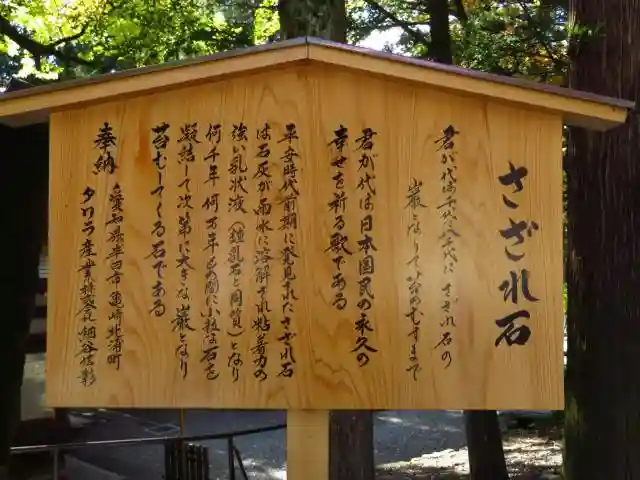 さざれ石
君が代は千代に八千代に さざれ石の
巌となりて苔のむすまで
君が代は日本国民の永久の
幸せを祈る歌である
平安時代前期に発見されたさざれ石
は石灰が雨水に溶解され粘着力の
強い乳状液(鍾乳石と同質)となり
何千年何万年の間に小粒な石を
凝結して次第に大きな巌となり
苔むしてくる石である
奉納 愛知県半田市亀崎北浦町
タワラ産業株式会社 細谷